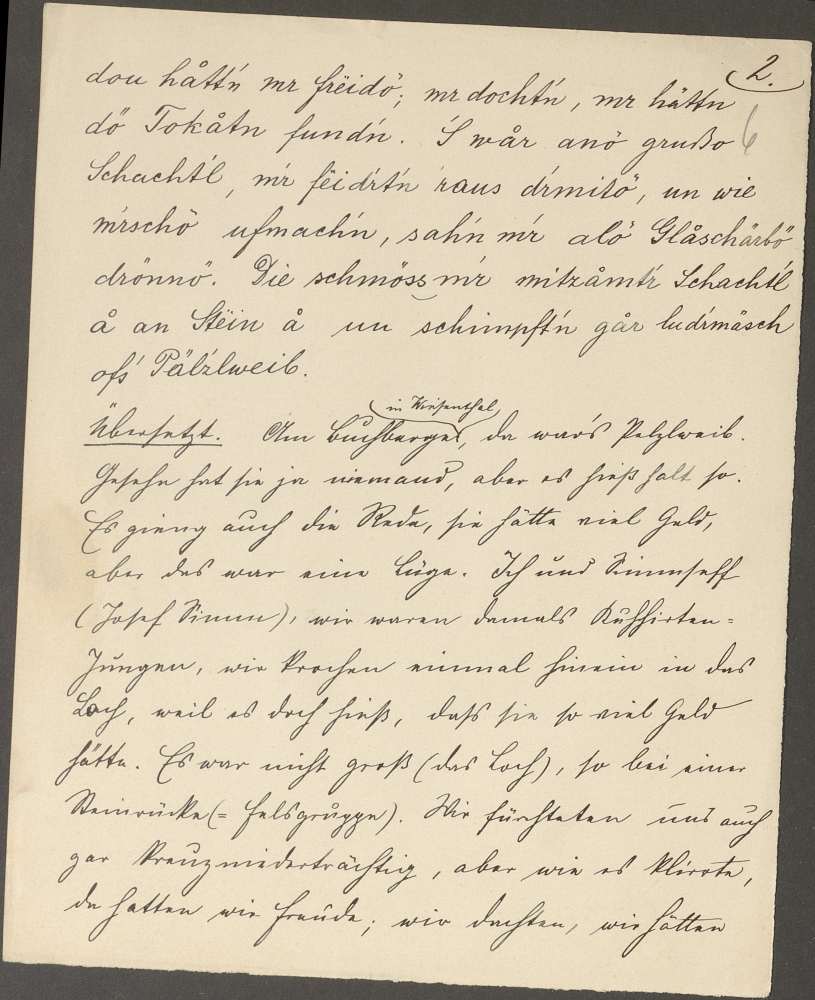 2.
dou hått'n mr frëidö; mr docht'n, mr hätt'n
dö Tokåtn fund'n. 'S wår anö grußo
6
Schacht'l, m'r fëid'rt'n 'raus d'rmitö, un wie
m'rschö ufmach'n, sah'n m'r alö Glåschärbö
drönnö. Die schmöss m'r mitzåmt'r Schacht'l
å an Stëin å un schimpft'n går lud'rmäsch
of's Pälzlweib.
in Wiesenthal
Übersetzt. Am Buchberge, da war's Pelzlweib.
Gesehn hat sie ja niemand, aber es hieß halt so.
Es gieng auch die Rede, sie hätte viel Geld,
aber das war eine Lüge. Ich und Simmseff
(Josef Simm), wir waren damals Kuhhirten-
Jungen, wir krochen einmal hinein in das
Loch, weil es doch hieß, daß sie so viel Geld
hätte. Es war nicht groß (das Loch), so bei einer
Steinrücke (= Felsgruppe). Wir fürchteten uns auch
gar kreuzniederträchtig, aber wie es klirrte,
da hatten wir Freude; wir dachten, wir hätten